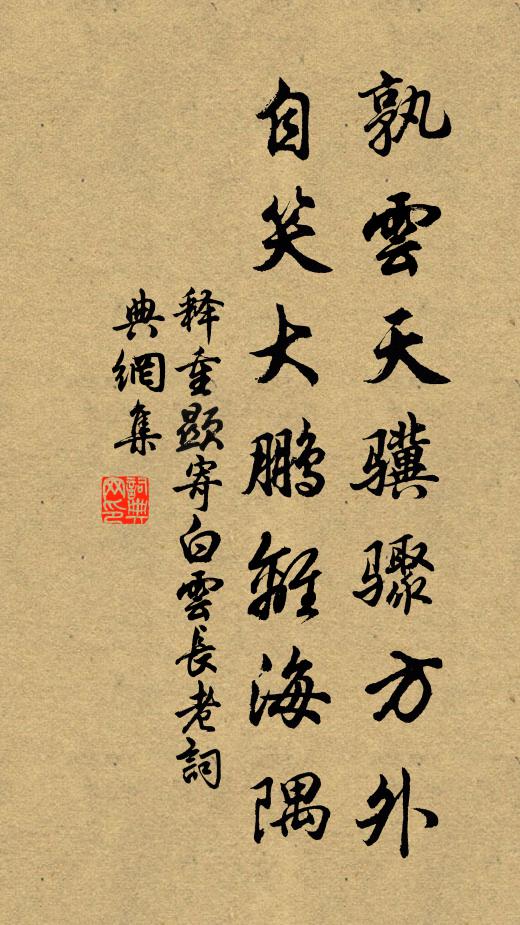 孰雲天驥驟方外
自笑大鵬離海隅
释重顯寄白雲長老詞
典網集
詞典網印